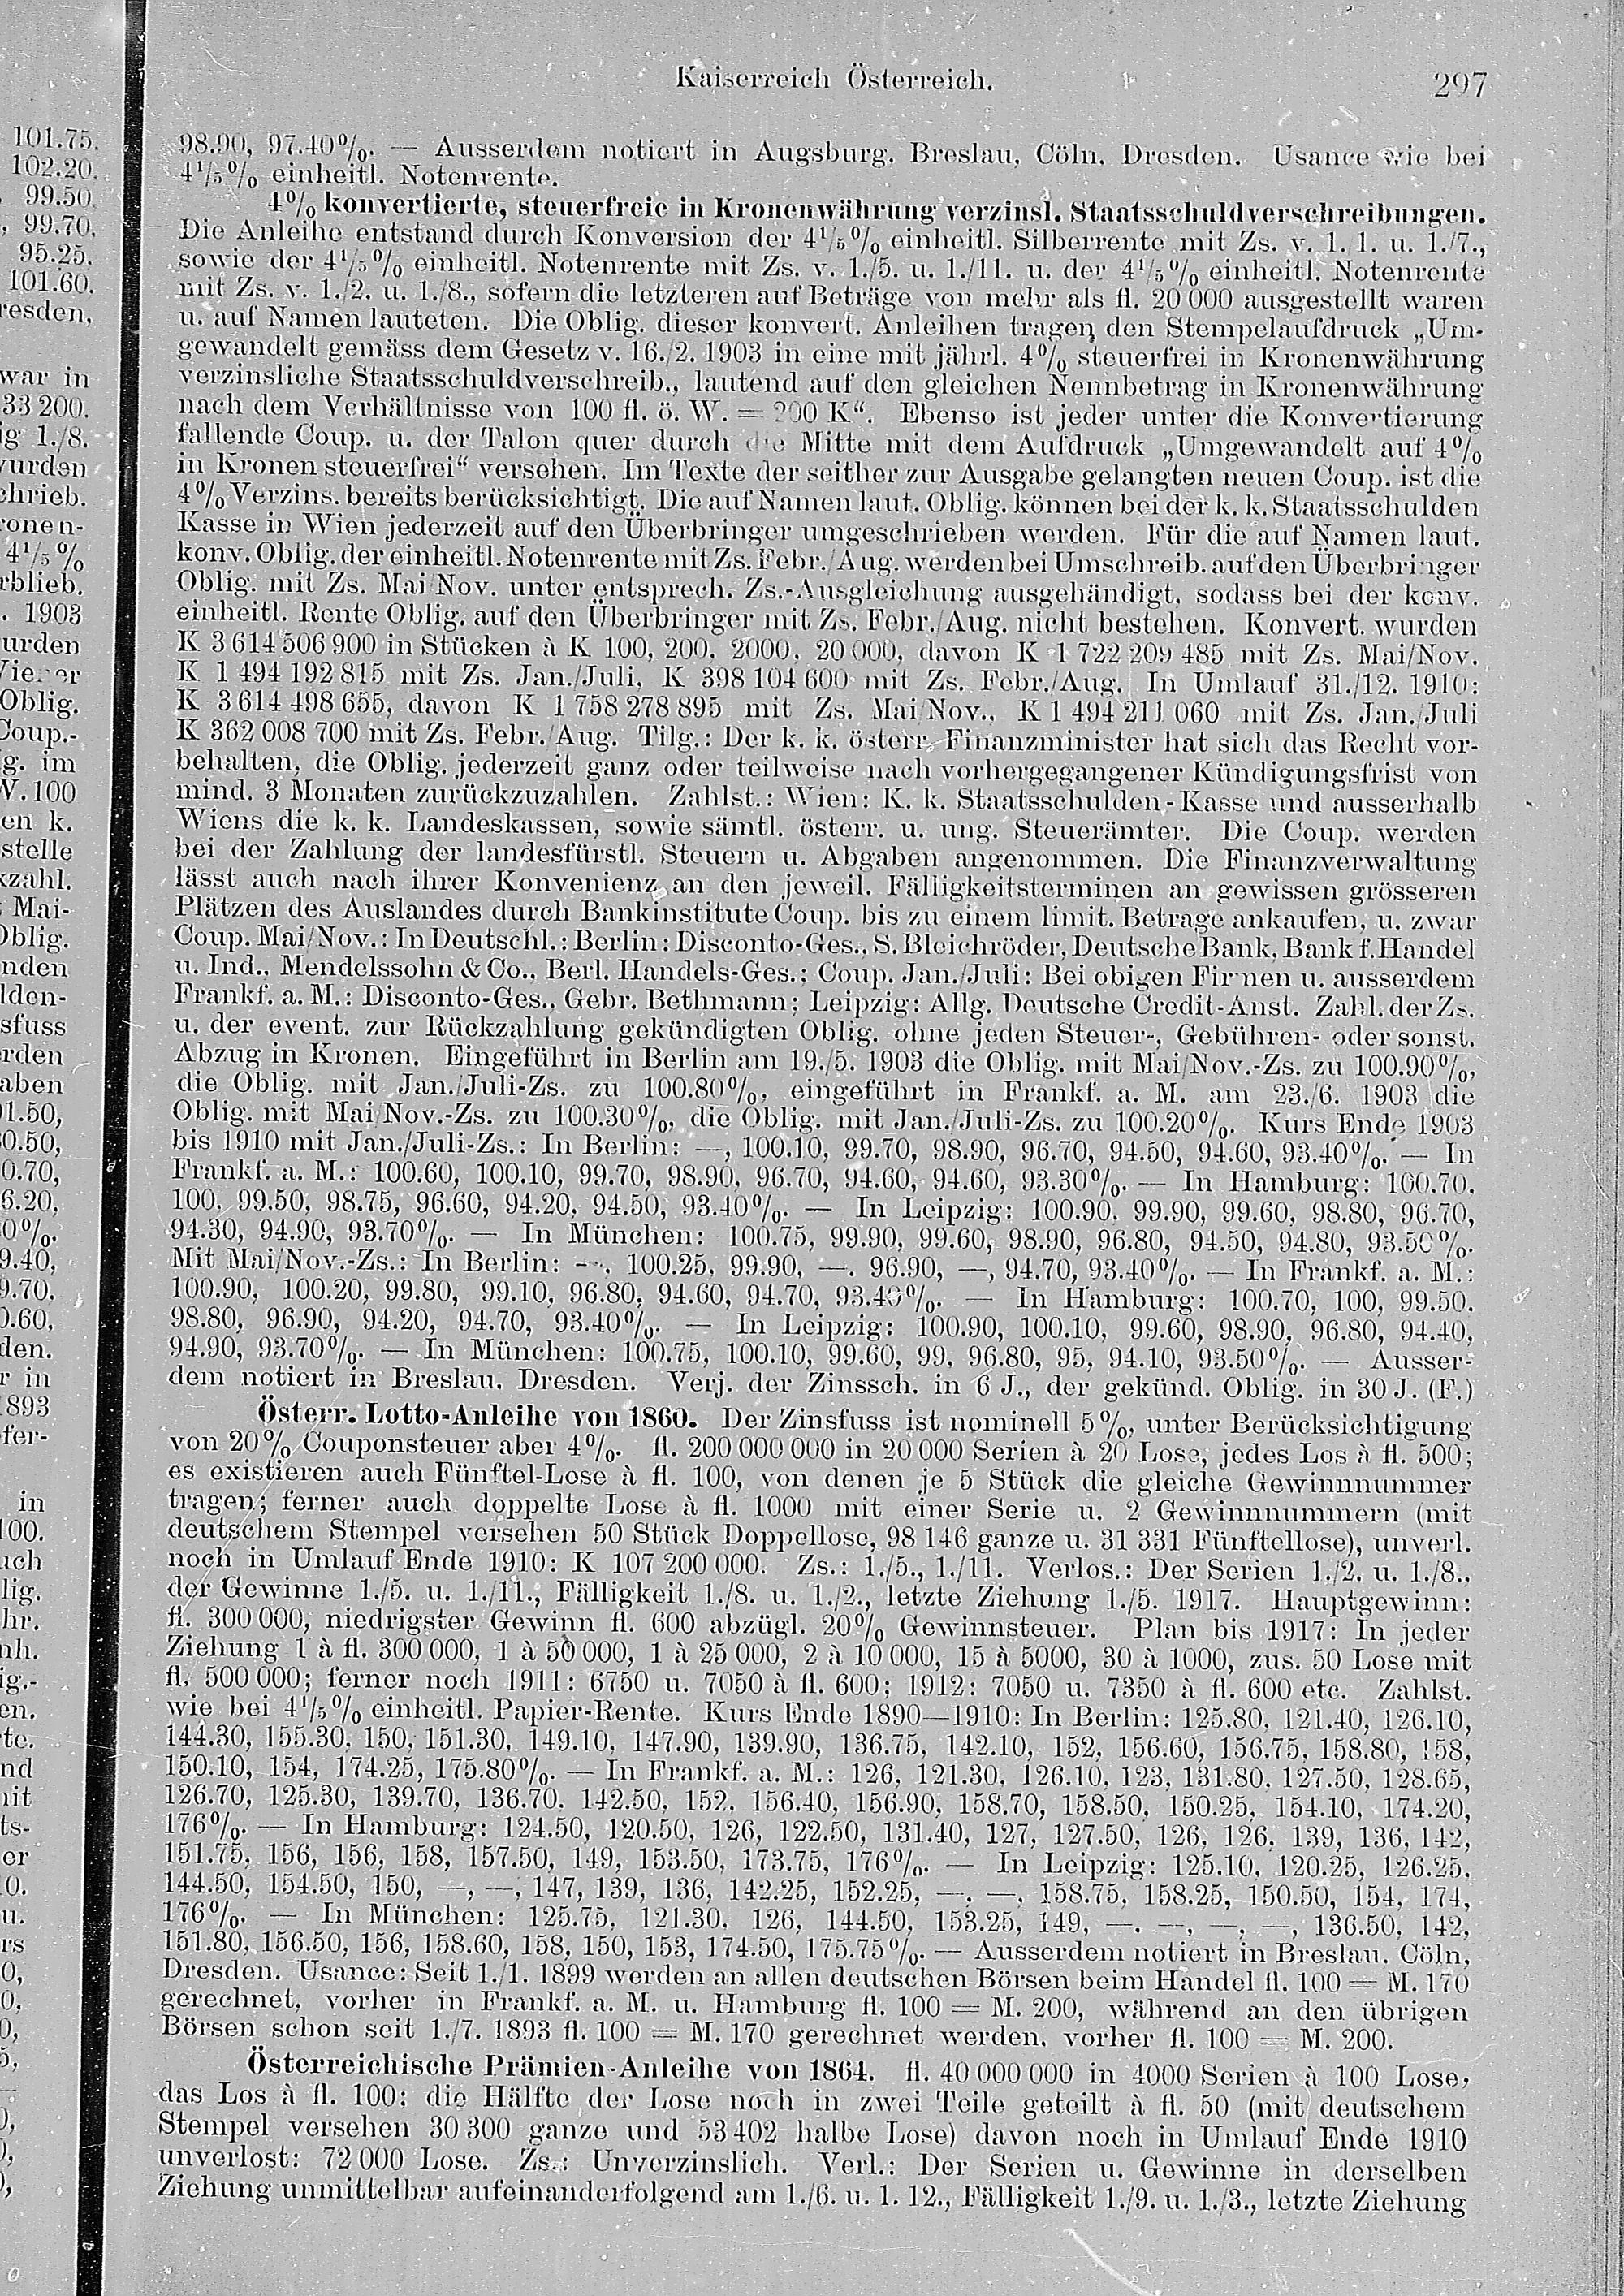 Kaiserreich Österreich. 297
98.90, 97.40%. — Ausserdem notiert in Augsburg, Breslau, Cöln, Dresden. Usance wie bei
4¹/₅% einheitl. Notenrente.
4% konvertierte, steuerfreie in Kronenwährung verzinsl. Staatsschuldverschreibungen.
Die Anleihe entstand durch Konversion der 4¹/₅% einheitl. Silberrente mit Zs. v. 1. 1. u. 1./7.,
sowie der 4¹/₅% einheitl. Notenrente mit Zs. v. 1./5. u. 1./11. u. der 4¹/₅% einheitl. Notenrente
mit Zs. v. 1./2. u. 1./8., sofern die letzteren auf Beträge von mehr als fl. 20 000 ausgestellt waren
u. auf Namen lauteten. Die Oblig. dieser konvert. Anleihen tragen den Stempelaufdruck „Um-
gewandelt gemäss dem Gesetz v. 16./2. 1903 in eine mit jährl. 4% steuerfrei in Kronenwährung
verzinsliche Staatsschuldverschreib., lautend auf den gleichen Nennbetrag in Kronenwährung
nach dem Verhältnisse von 100 fl. ö. W. = 200 K“. Ebenso ist jeder unter die Konvertierung
fallende Coup. u. der Talon quer durch die Mitte mit dem Aufdruck „Umgewandelt auf 4%
in Kronen steuerfrei“ versehen. Im Texte der seither zur Ausgabe gelangten neuen Coup. ist die
4% Verzins. bereits berücksichtigt. Die auf Namen laut. Oblig. können bei der k. k. Staatsschulden
Kasse in Wien jederzeit auf den Überbringer umgeschrieben werden. Für die auf Namen laut.
konv. Oblig. der einheitl. Notenrente mit Zs. Febr./Aug. werden bei Umschreib. auf den Überbringer
Oblig. mit Zs. Mai/Nov. unter entsprech. Zs.-Ausgleichung ausgehändigt, sodass bei der konv.
einheitl. Rente Oblig. auf den Überbringer mit Zs. Febr./Aug. nicht bestehen. Konvert. wurden
K 3 614 506 900 in Stücken à K 100, 200, 2000, 20 000, davon K 1 722 209 485 mit Zs. Mai/Nov.
K 1 494 192 815 mit Zs. Jan./Juli, K 398 104 600 mit Zs. Febr./Aug. In Umlauf 31./12. 1910:
K 3 614 498 655, davon K 1 758 278 895 mit Zs. Mai/Nov., K 1 494 211 060 mit Zs. Jan./Juli
K 362 008 700 mit Zs. Febr./Aug. Tilg.: Der k. k. österr. Finanzminister hat sich das Recht vor-
behalten, die Oblig. jederzeit ganz oder teilweise nach vorhergegangener Kündigungsfrist von
mind. 3 Monaten zurückzuzahlen. Zahlst.: Wien: K. k. Staatsschulden-Kasse und ausserhalb
Wiens die k. k. Landeskassen, sowie sämtl. österr. u. ung. Steuerämter. Die Coup. werden
bei der Zahlung der landesfürstl. Steuern u. Abgaben angenommen. Die Finanzverwaltung
lässt auch nach ihrer Konvenienz an den jeweil. Fälligkeitsterminen an gewissen grösseren
Plätzen des Auslandes durch Bankinstitute Coup. bis zu einem limit. Betrage ankaufen, u. zwar
Coup. Mai/Nov.: In Deutschl.: Berlin: Disconto-Ges., S. Bleichröder, Deutsche Bank, Bank f. Handel
u. Ind., Mendelssohn & Co., Berl. Handels-Ges.; Coup. Jan./Juli: Bei obigen Firmen u. ausserdem
Frankf. a. M.: Disconto-Ges., Gebr. Bethmann; Leipzig: Allg. Deutsche Credit-Anst. Zahl. der Zs.
u. der event. zur Rückzahlung gekündigten Oblig. ohne jeden Steuer-, Gebühren- oder sonst.
Abzug in Kronen. Eingeführt in Berlin am 19./5. 1903 die Oblig. mit Mai/Nov.-Zs. zu 100.90%,
die Oblig. mit Jan./Juli-Zs. zu 100.80%, eingeführt in Frankf. a. M. am 23./6. 1903 die
Oblig. mit Mai/Nov.-Zs. zu 100.30%, die Oblig. mit Jan./Juli-Zs. zu 100.20%. Kurs Ende 1903
bis 1910 mit Jan./Juli-Zs.: In Berlin: —, 100.10, 99.70, 98.90, 96.70, 94.50, 94.60, 93.40%. — In
Frankf. a. M.: 100.60, 100.10, 99.70, 98.90, 96.70, 94.60, 94.60, 93.30%. — In Hamburg: 100.70,
100, 99.50, 98.75, 96.60, 94.20, 94.50, 93.40%. — In Leipzig: 100.90, 99.90, 99.60, 98.80, 96.70,
94.30, 94.90, 93.70%. — In München: 100.75, 99.90, 99.60, 98.90, 96.80, 94.50, 94.80, 93.50%.
Mit Mai/Nov.-Zs.: In Berlin: —, 100.25, 99.90, —, 96.90, —, 94.70, 93.40%. — In Frankf. a. M.:
100.90, 100.20, 99.80, 99.10, 96.80, 94.60, 94.70, 93.40%. — In Hamburg: 100.70, 100, 99.50,
98.80, 96.90, 94.20, 94.70, 93.40%. — In Leipzig: 100.90, 100.10, 99.60, 98.90, 96.80, 94.40,
94.90, 93.70%. — In München: 100.75, 100.10, 99.60, 99, 96.80, 95, 94.10, 93.50%. — Ausser-
dem notiert in Breslau, Dresden. Verj. der Zinssch. in 6 J., der gekünd. Oblig. in 30 J. (F.)
Österr. Lotto-Anleihe von 1860. Der Zinsfuss ist nominell 5%, unter Berücksichtigung
von 20% Couponsteuer aber 4%. fl. 200 000 000 in 20 000 Serien à 20 Lose, jedes Los à fl. 500;
es existieren auch Fünftel-Lose à fl. 100, von denen je 5 Stück die gleiche Gewinnnummer
tragen; ferner auch doppelte Lose à fl. 1000 mit einer Serie u. 2 Gewinnnummern (mit
deutschem Stempel versehen 50 Stück Doppellose, 98 146 ganze u. 31 331 Fünftellose), unverl.
noch in Umlauf Ende 1910: K 107 200 000. Zs.: 1./5., 1./11. Verlos.: Der Serien 1./2. u. 1./8.,
der Gewinne 1./5. u. 1./11., Fälligkeit 1./8. u. 1./2., letzte Ziehung 1./5. 1917. Hauptgewinn:
fl. 300 000, niedrigster Gewinn fl. 600 abzügl. 20% Gewinnsteuer. Plan bis 1917: In jeder
Ziehung 1 à fl. 300 000, 1 à 50 000, 1 à 25 000, 2 à 10 000, 15 à 5000, 30 à 1000, zus. 50 Lose mit
fl. 500 000; ferner noch 1911: 6750 u. 7050 à fl. 600; 1912: 7050 u. 7350 à fl. 600 etc. Zahlst.
wie bei 4¹/₅% einheitl. Papier-Rente. Kurs Ende 1890—1910: In Berlin: 125.80, 121.40, 126.10,
144.30, 155.30, 150, 151.30, 149.10, 147.90, 139.90, 136.75, 142.10, 152, 156.60, 156.75, 158.80, 158,
150.10, 154, 174.25, 175.80%. — In Frankf. a. M.: 126, 121.30, 126.10, 123, 131.80, 127.50, 128.65,
126.70, 125.30, 139.70, 136.70, 142.50, 152, 156.40, 156.90, 158.70, 158.50, 150.25, 154.10, 174.20,
176%. — In Hamburg: 124.50, 120.50, 126, 122.50, 131.40, 127, 127.50, 126, 126, 139, 136, 142,
151.75, 156, 156, 158, 157.50, 149, 153.50, 173.75, 176%. — In Leipzig: 125.10, 120.25, 126.25,
144.50, 154.50, 150, —, —, 147, 139, 136, 142.25, 152.25, —, —, 158.75, 158.25, 150.50, 154, 174,
176%. — In München: 125.75, 121.30, 126, 144.50, 153.25, 149, —, —, —, —, 136.50, 142,
151.80, 156.50, 156, 158.60, 158, 150, 153, 174.50, 175.75%. — Ausserdem notiert in Breslau, Cöln,
Dresden. Usance: Seit 1./1. 1899 werden an allen deutschen Börsen beim Handel fl. 100 = M. 170
gerechnet, vorher in Frankf. a. M. u. Hamburg fl. 100 = M. 200, während an den übrigen
Börsen schon seit 1./7. 1893 fl. 100 = M. 170 gerechnet werden, vorher fl. 100 = M. 200.
Österreichische Prämien-Anleihe von 1864. fl. 40 000 000 in 4000 Serien à 100 Lose,
das Los à fl. 100; die Hälfte der Lose noch in zwei Teile geteilt à fl. 50 (mit deutschem
Stempel versehen 30 300 ganze und 53 402 halbe Lose) davon noch in Umlauf Ende 1910
unverlost: 72 000 Lose. Zs.: Unverzinslich. Verl.: Der Serien u. Gewinne in derselben
Ziehung unmittelbar aufeinanderfolgend am 1./6. u. 1. 12., Fälligkeit 1./9. u. 1./3., letzte Ziehung